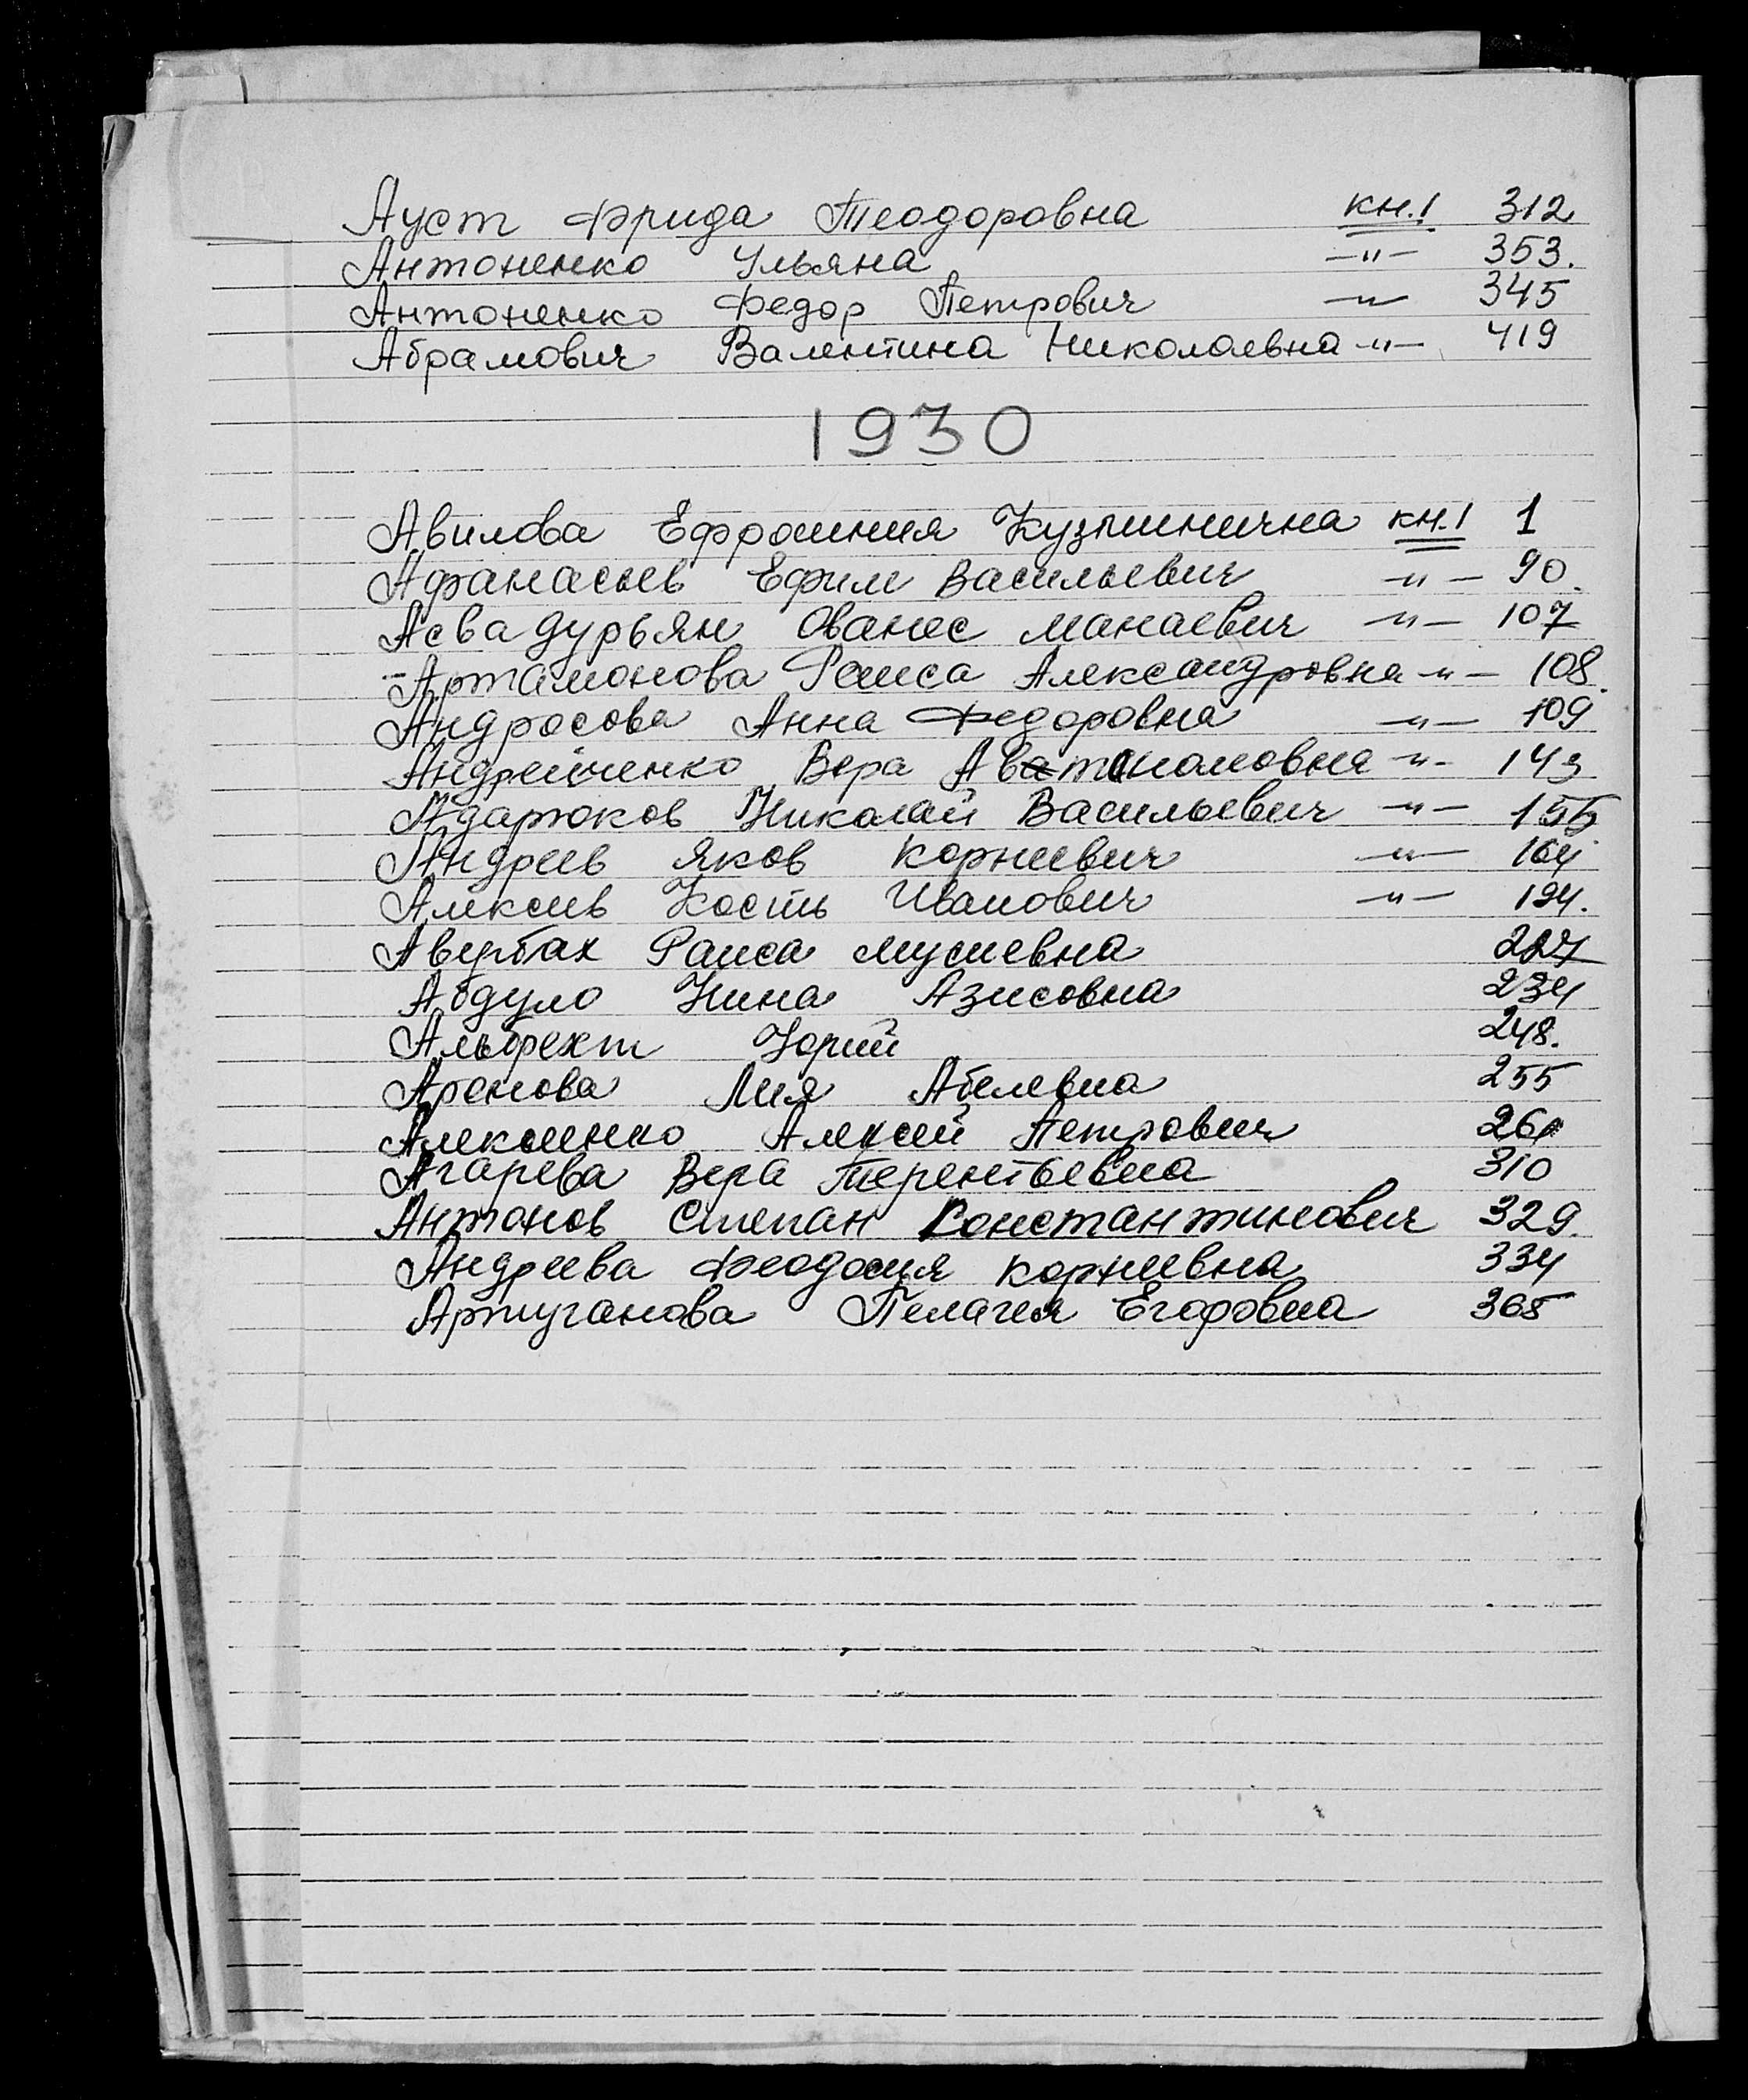 Ауст Фрида Теодоровна кн.1 312
Антоненко Ульяна -"- 353.
Антоненко Федор Петрович -"- 345
Абрамович Валентина Николаевна -"- 419
1930
Авилова Ефросиния Кузьминична кн.1 1
Афанасьев Ефим Васильевич -"- 90.
Асвадурьян Ованес Манаевич -"- 107
Артамонова Раиса Александровна -"- 108.
Андросова Анна Федоровна -"- 109
Андрейченко Вера Автономовна -"- 143
Адарюков Николай Васильевич -"- 155
Андреев Яков Корнеевич -"- 164
Алексеев Кость Иванович -"- 194.
Авербах Раиса Мусиевна 227
Абдуло Нина Азисовна 234
Альбрехт Юрий 248.
Аронова Лия Абелевна 255
Алексеенко Алексей Петрович
Агарева Вера Терентьевна 310
Антонов Степан Константинович 329.
Андреева Феодосия Корнеевна 334
Артуганова Пелагея Егоровна 365